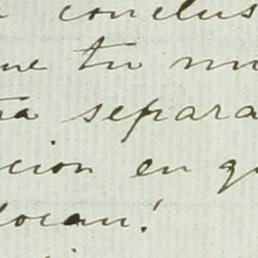 conclus
ue tu mu
ra separa
cion en q
locan!